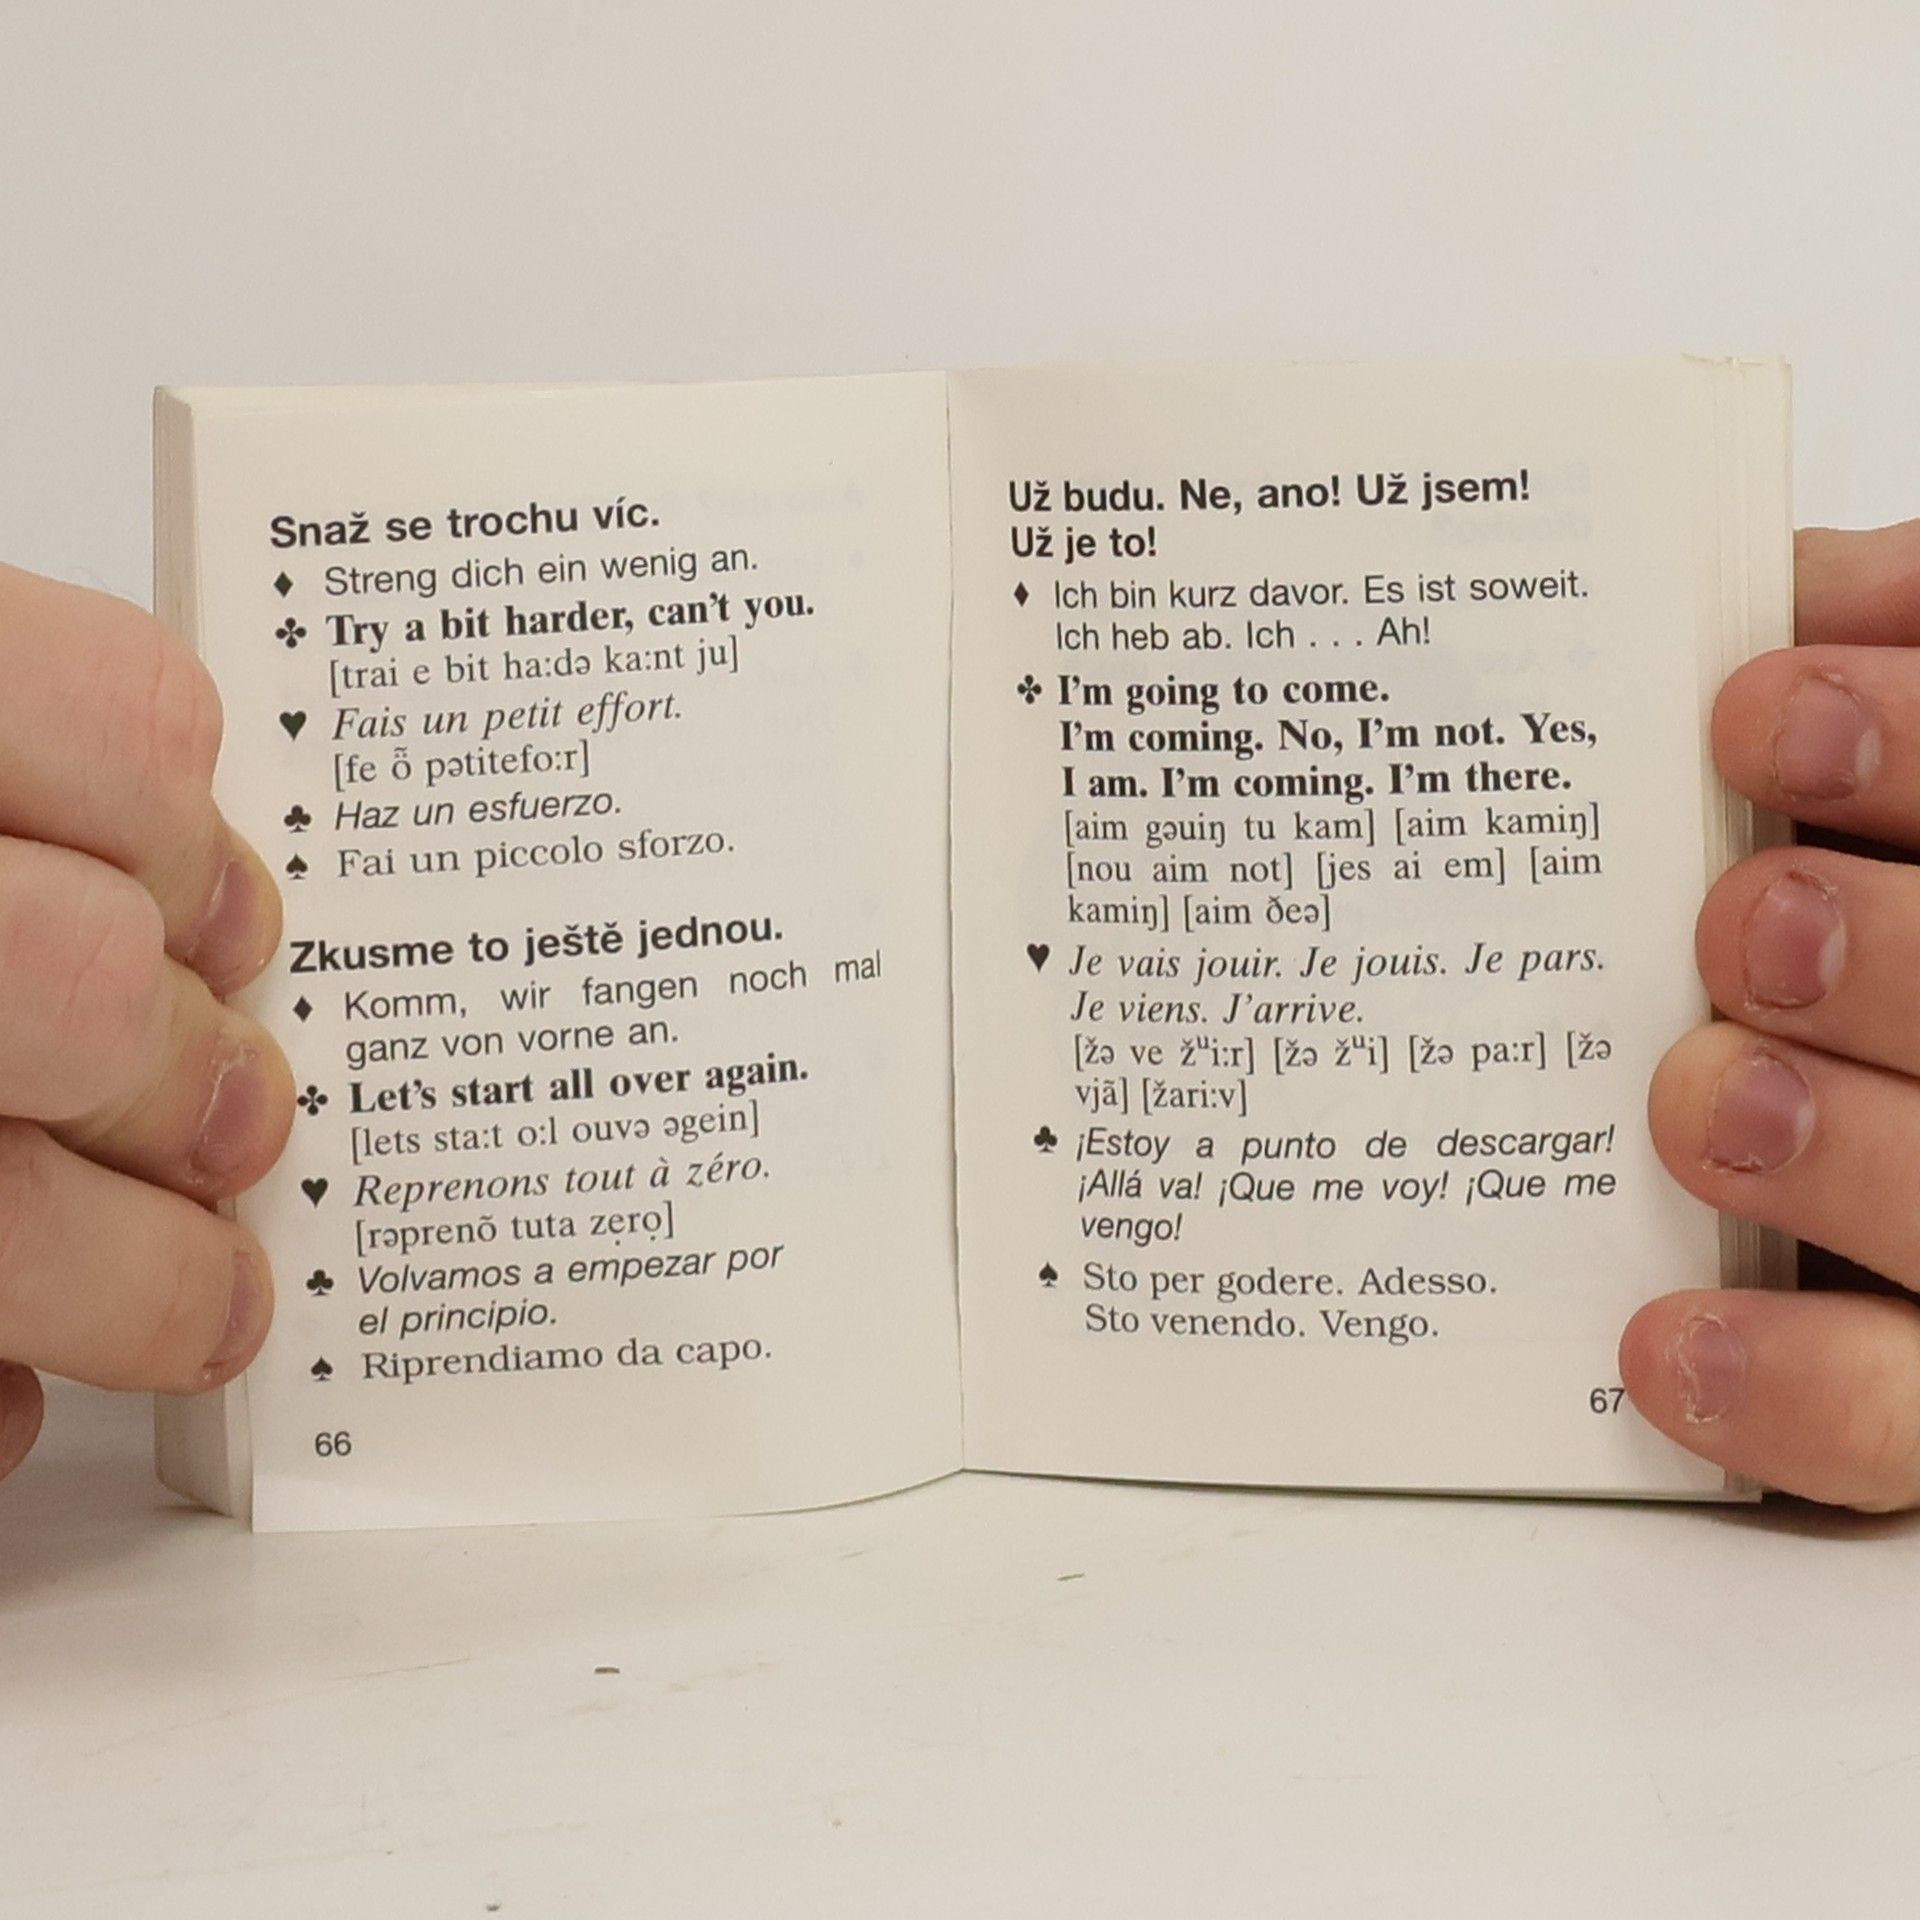 Snaž se trochu víc.
♦ Streng dich ein wenig an.
✤ Try a bit harder, can't you.
[trai e bit ha:də ka:nt ju]
♥ Fais un petit effort.
[fe ȭ pətitefo:r]
♣ Haz un esfuerzo.
♠ Fai un piccolo sforzo.
Zkusme to ještě jednou.
♦ Komm, wir fangen noch mal
ganz von vorne an.
✤ Let's start all over again.
[lets sta:t o:l ouvə əgein]
♥ Reprenons tout à zéro.
[rəprenõ tuta zẹrọ]
♣ Volvamos a empezar por
el principio.
♠ Riprendiamo da capo.
66
Už budu. Ne, ano! Už jsem!
Už je to!
♦ Ich bin kurz davor. Es ist soweit.
Ich heb ab. Ich . . . Ah!
✤ I'm going to come.
I'm coming. No, I'm not. Yes,
I am. I'm coming. I'm there.
[aim gəuiŋ tu kam] [aim kamiŋ]
[nou aim not] [jes ai em] [aim
kamiŋ] [aim ðeə]
♥ Je vais jouir. Je jouis. Je pars.
Je viens. J'arrive.
[žə ve žᵘi:r] [žə žᵘi] [žə pa:r] [žə
vjã] [žari:v]
♣ ¡Estoy a punto de descargar!
¡Allá va! ¡Que me voy! ¡Que me
vengo!
♠ Sto per godere. Adesso.
Sto venendo. Vengo.
67